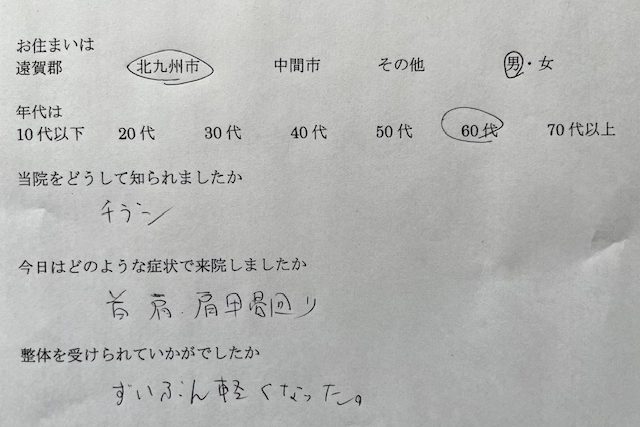 お住まいは
遠賀郡 北九州市 中間市 その他 男・女
年代は
10代以下 20代 30代 40代 50代 60代 70代以上
当院をどうして知られましたか
チラシ
今日はどのような症状で来院しましたか
首 肩 肩甲骨回り
整体を受けられていかがでしたか
ずいぶん軽くなった。